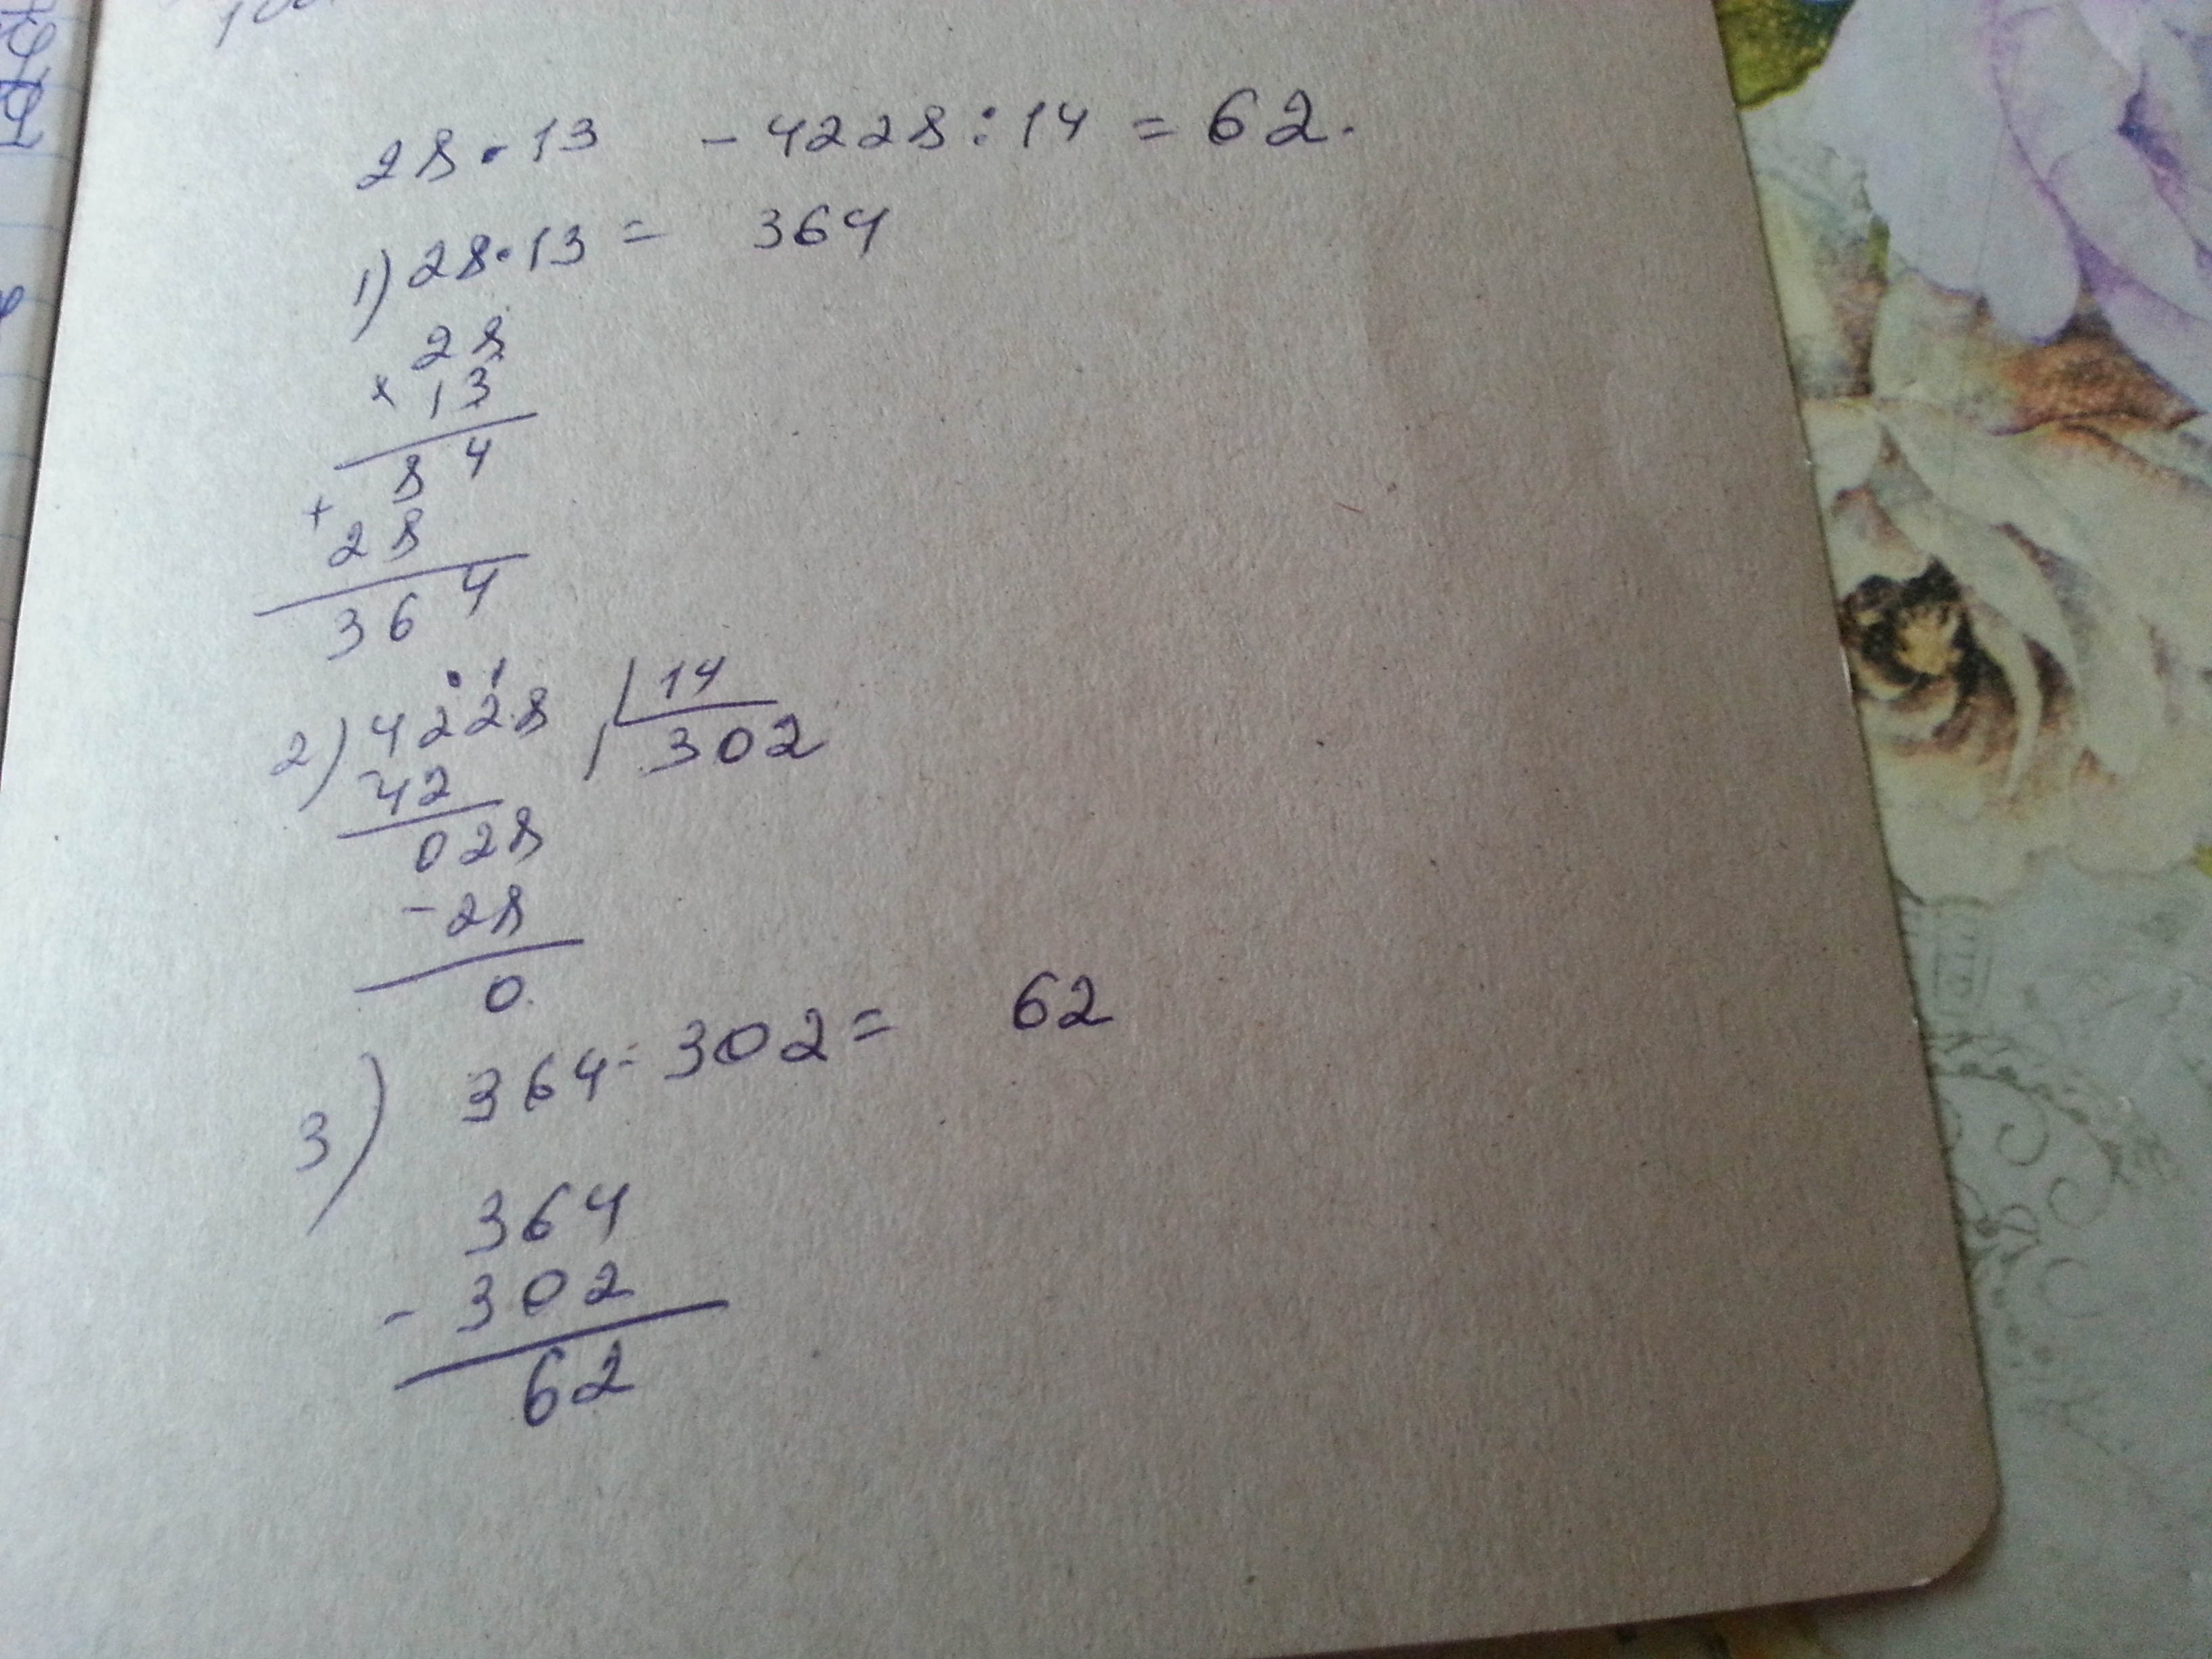 28·13 - 4228:14 = 62.
1) 28·13 = 364
28
× 13
84
+
28
364
2) 4228 14
- 42 302
028
- 28
0.
3) 364 - 302 = 62
364
- 302
62